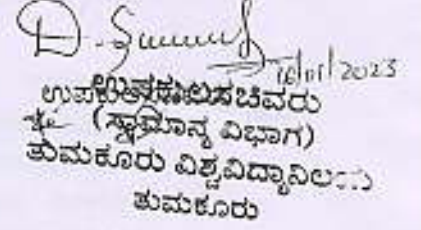 16/01/2023
ಉಪಕುಲಸಚಿವರು
(ಸಾಮಾನ್ಯ ವಿಭಾಗ)
ತುಮಕೂರು ವಿಶ್ವವಿದ್ಯಾನಿಲಯ
ತುಮಕೂರು